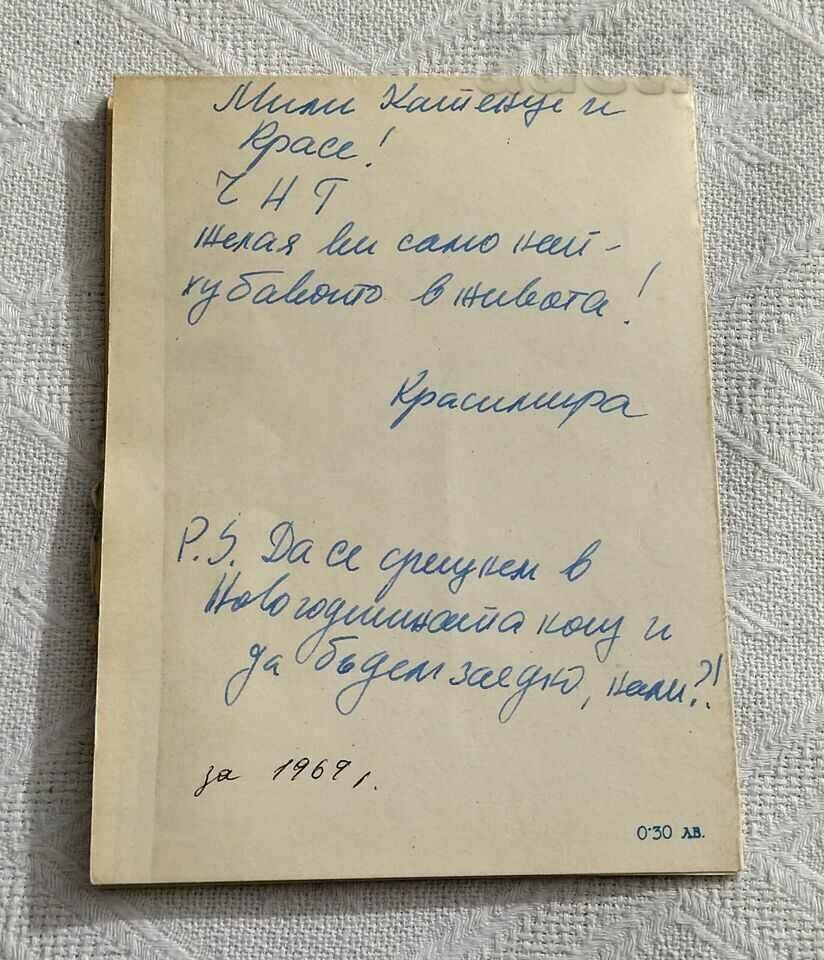 Мили Катенце и
Красе!
ЧНГ
желая ви само най-
хубавото в живота!
Красимира
P.S. Да се срещнем в
Новогодишната нощ и
да бъдем заедно, нали?!
за 1969 г.
0·30 ЛВ.